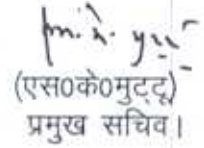 (एस0के0मुट्टू)
प्रमुख सचिव।